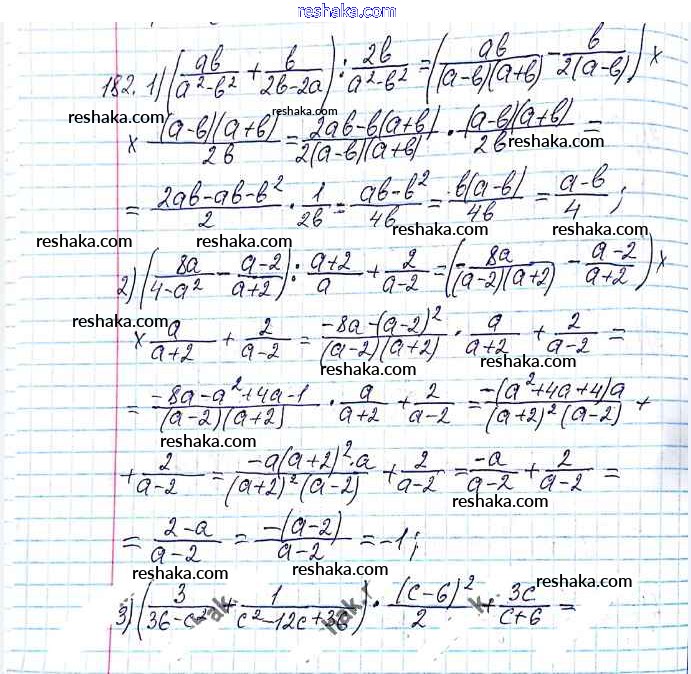 reshaka.com
182. 1) (ab/(a²-b²) + b/(2b-2a)) : 2b/(a²-b²) = (ab/((a-b)(a+b)) - b/(2(a-b))) ×
reshaka.com reshaka.com
× (a-b)(a+b)/2b = (2ab-b(a+b))/(2(a-b)(a+b)) · (a-b)(a+b)/2b =
reshaka.com
= (2ab-ab-b²)/2 · 1/2b = (ab-b²)/4b = b(a-b)/4b = (a-b)/4 ;
reshaka.com reshaka.com reshaka.com
2) (8a/(4-a²) - (a-2)/(a+2)) : (a+2)/a + 2/(a-2) = (-8a/((a-2)(a+2)) - (a-2)/(a+2)) ×
reshaka.com reshaka.com
× a/(a+2) + 2/(a-2) = (-8a-(a-2)²)/((a-2)(a+2)) · a/(a+2) + 2/(a-2) =
reshaka.com
= (-8a-a²+4a-1)/((a-2)(a+2)) · a/(a+2) + 2/(a-2) = -(a²+4a+4)a/((a+2)²(a-2)) +
reshaka.com reshaka.com
+ 2/(a-2) = -a(a+2)²·a/((a+2)²(a-2)) + 2/(a-2) = -a/(a-2) + 2/(a-2) =
reshaka.com
= (2-a)/(a-2) = -(a-2)/(a-2) = -1 ;
reshaka.com reshaka.com
reshaka.com
3) (3/(36-c²) + 1/(c²-12c+36)) · (c-6)²/2 + 3c/(c+6) =
reshaka.com reshaka.com